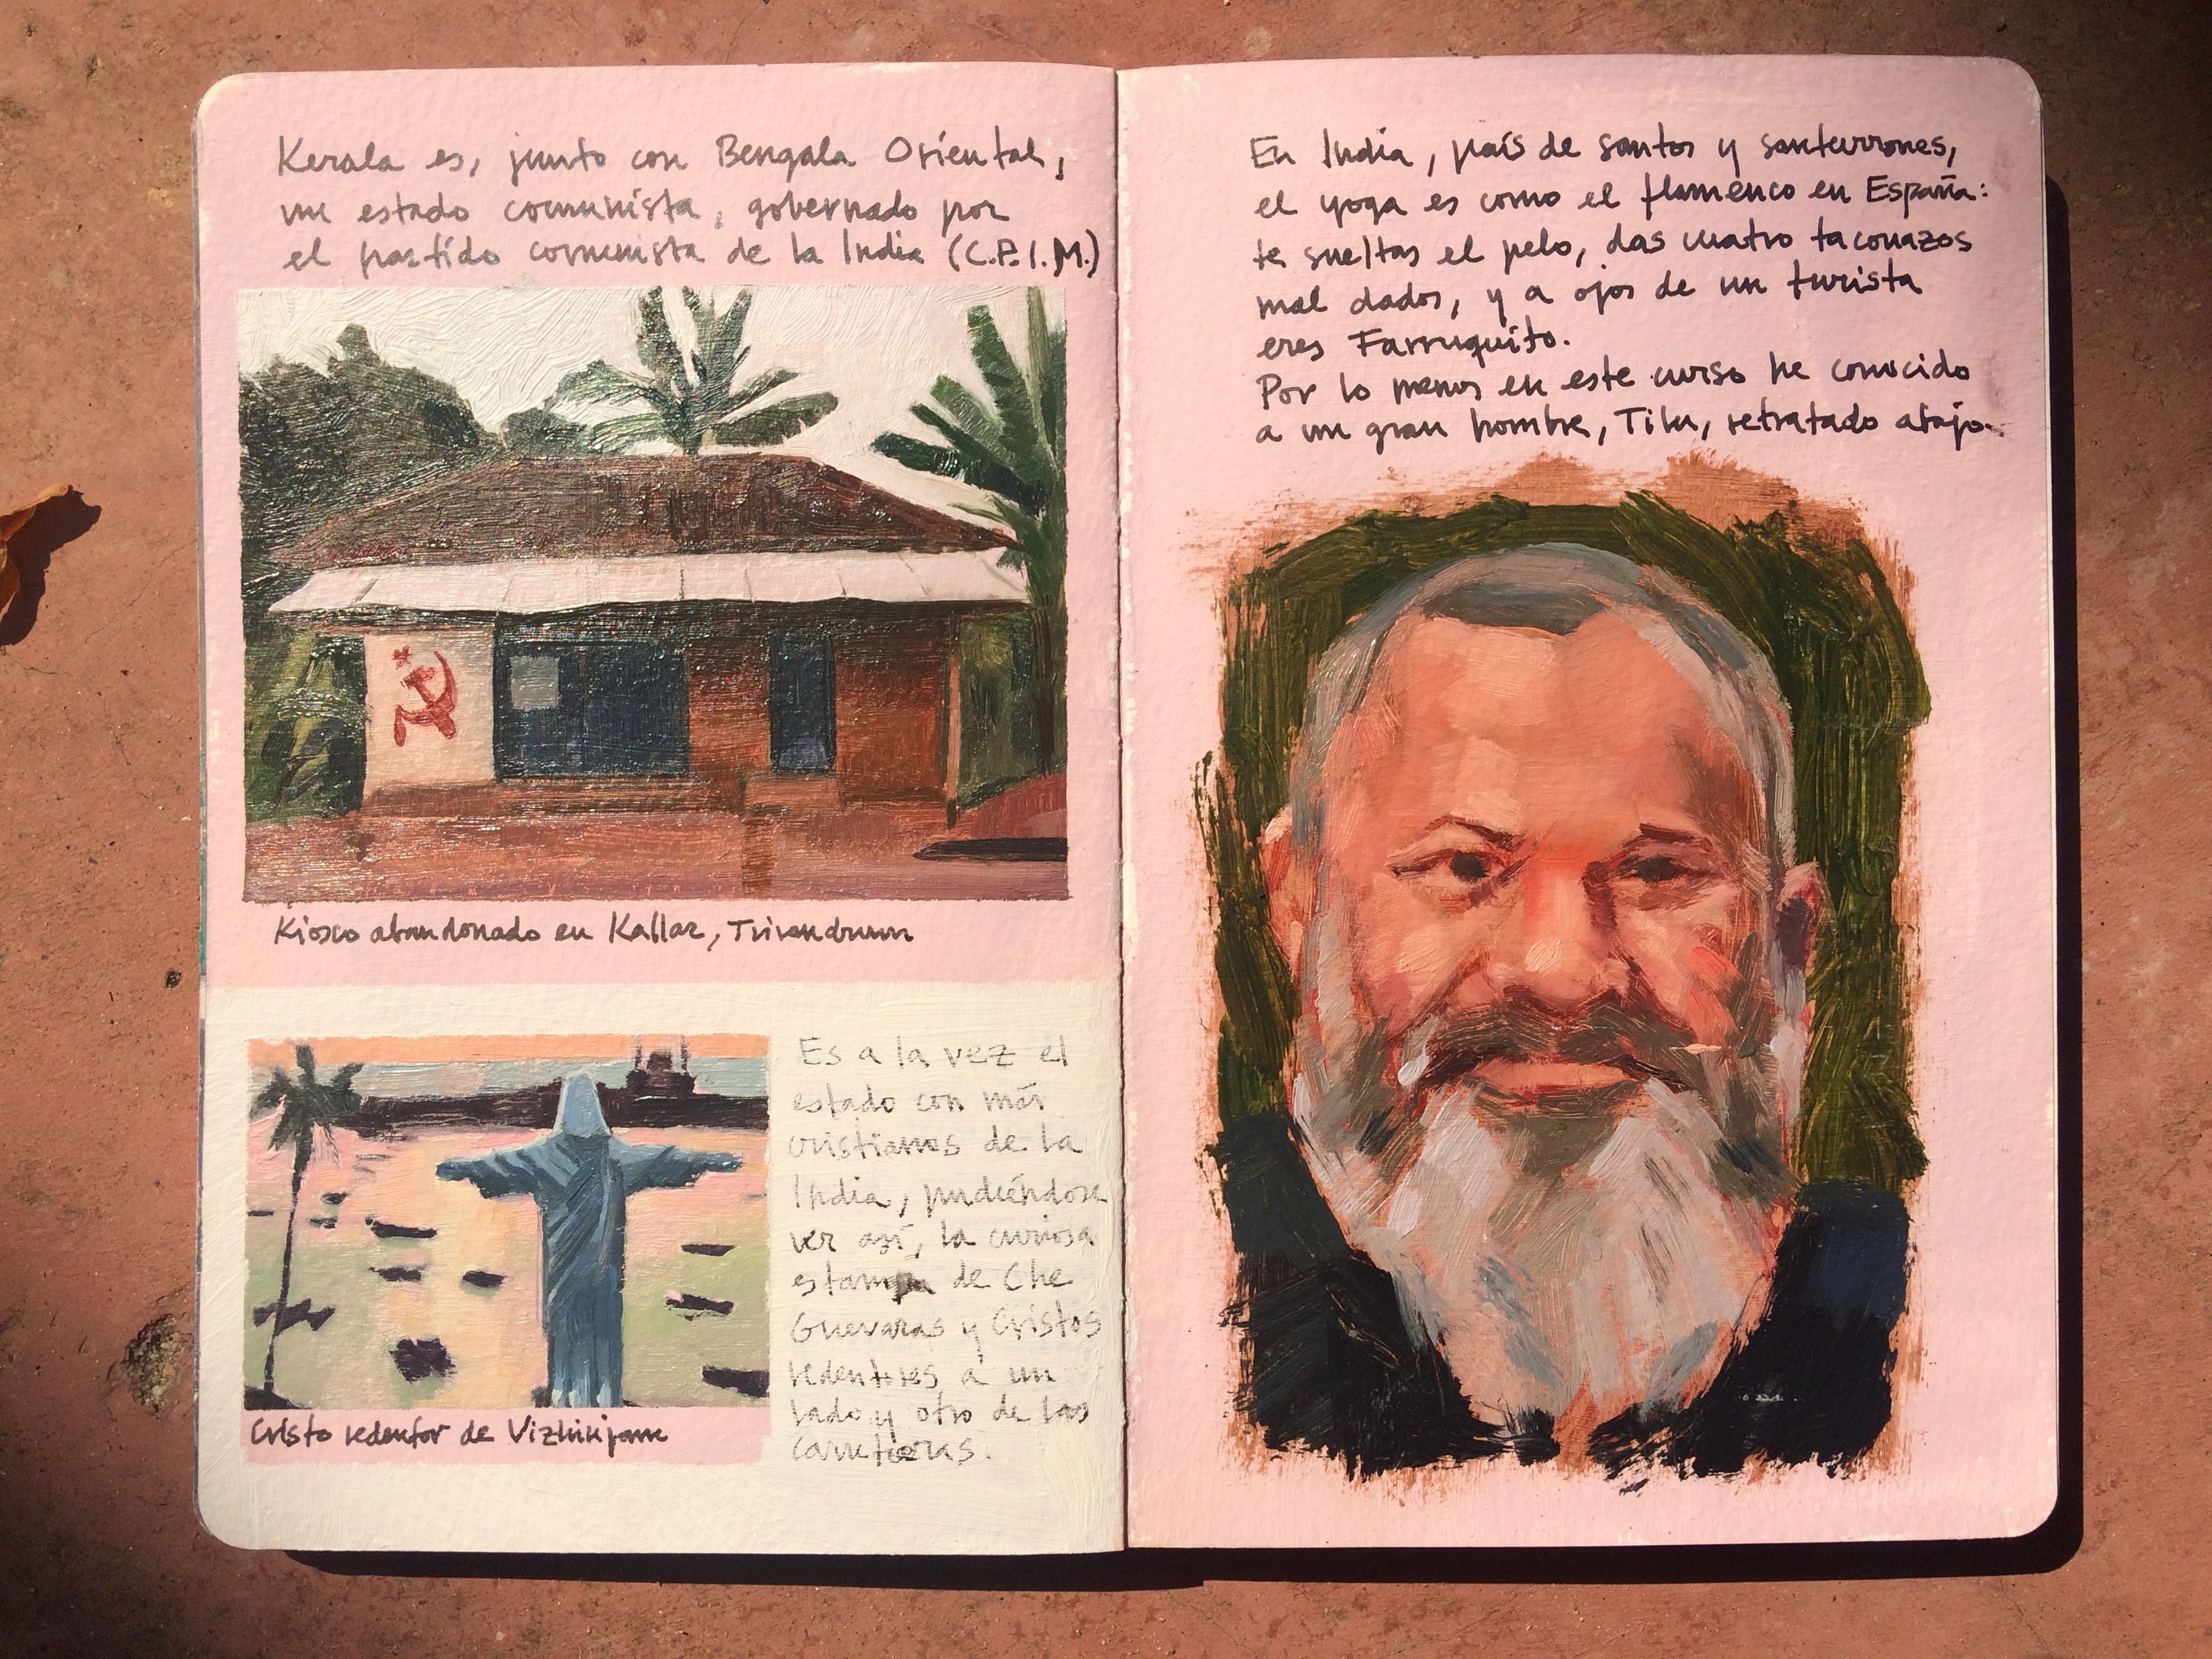 Kerala es, junto con Bengala Oriental,
un estado comunista, gobernado por
el partido comunista de la India (C.P.I.M.)
Kiosco abandonado en Kallar, Trivandrum
Es a la vez el
estado con más
cristianos de la
India, pudiéndose
ver así, la curiosa
estampa de Che
Guevaras y Cristos
redentores a un
lado y otro de las
carreteras.
Cristo redentor de Vizhinjam
En India, país de santos y santurrones,
el yoga es como el flamenco en España:
te sueltas el pelo, das cuatro taconazos
mal dados, y a ojos de un turista
eres Farruquito.
Por lo menos en este curso he conocido
a un gran hombre, Tilu, retratado abajo.